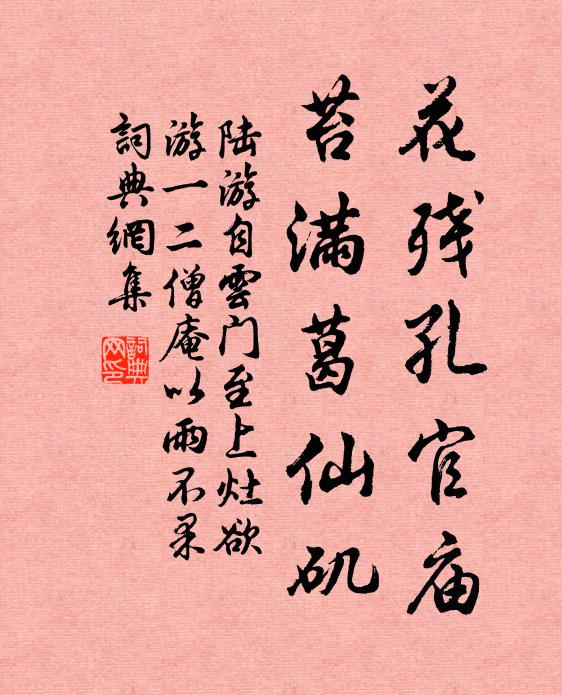 花残孔官庙
苔满葛仙矶
陆游自雲门至上灶欲
游一二僧庵以雨不果
詞典網集
詞典
网印